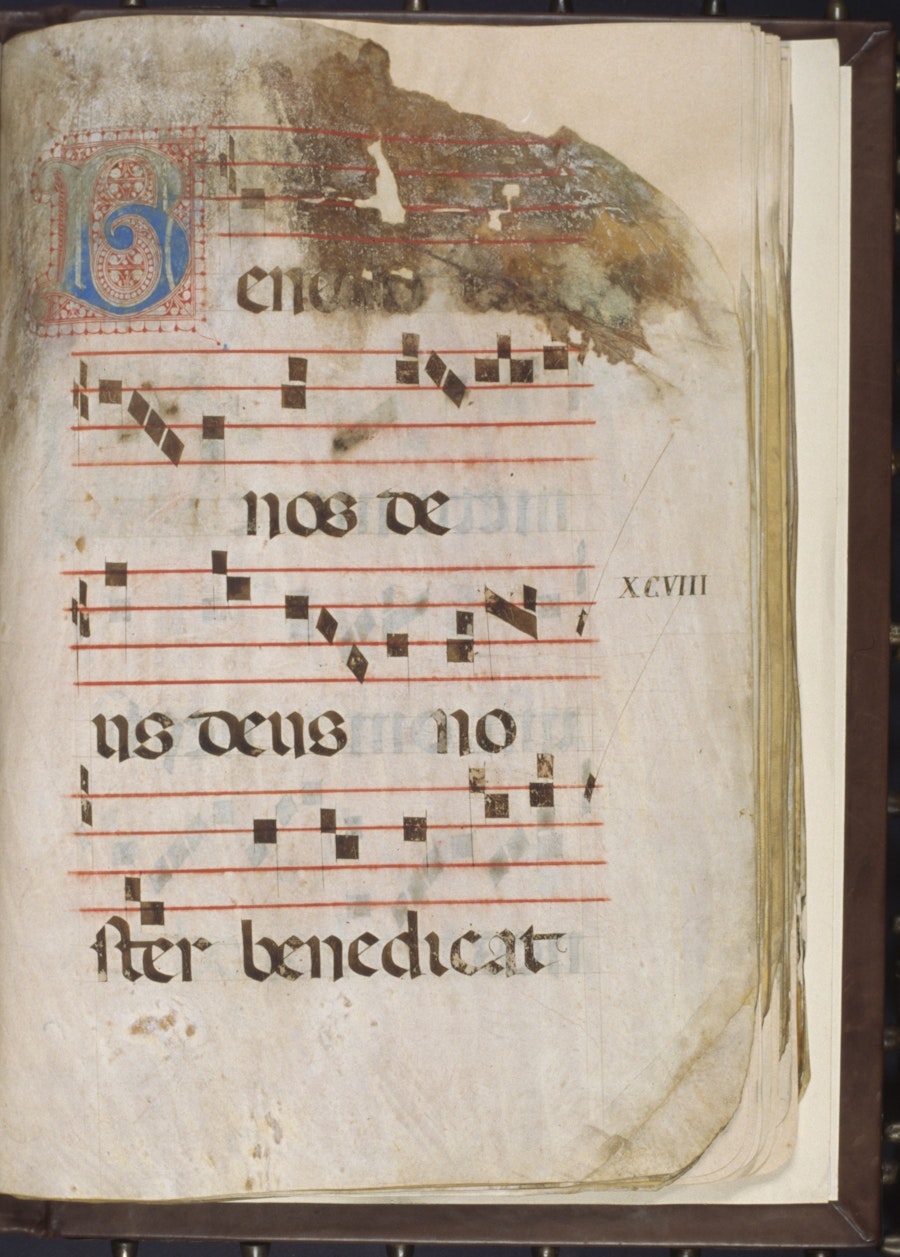 Benedicat
nos de
XCVIII
us deus no
ster benedicat